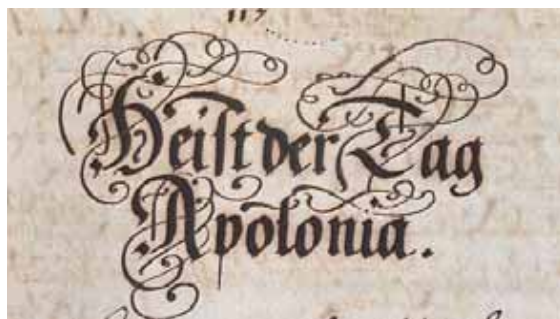 Heist der Tag
Apolonia.